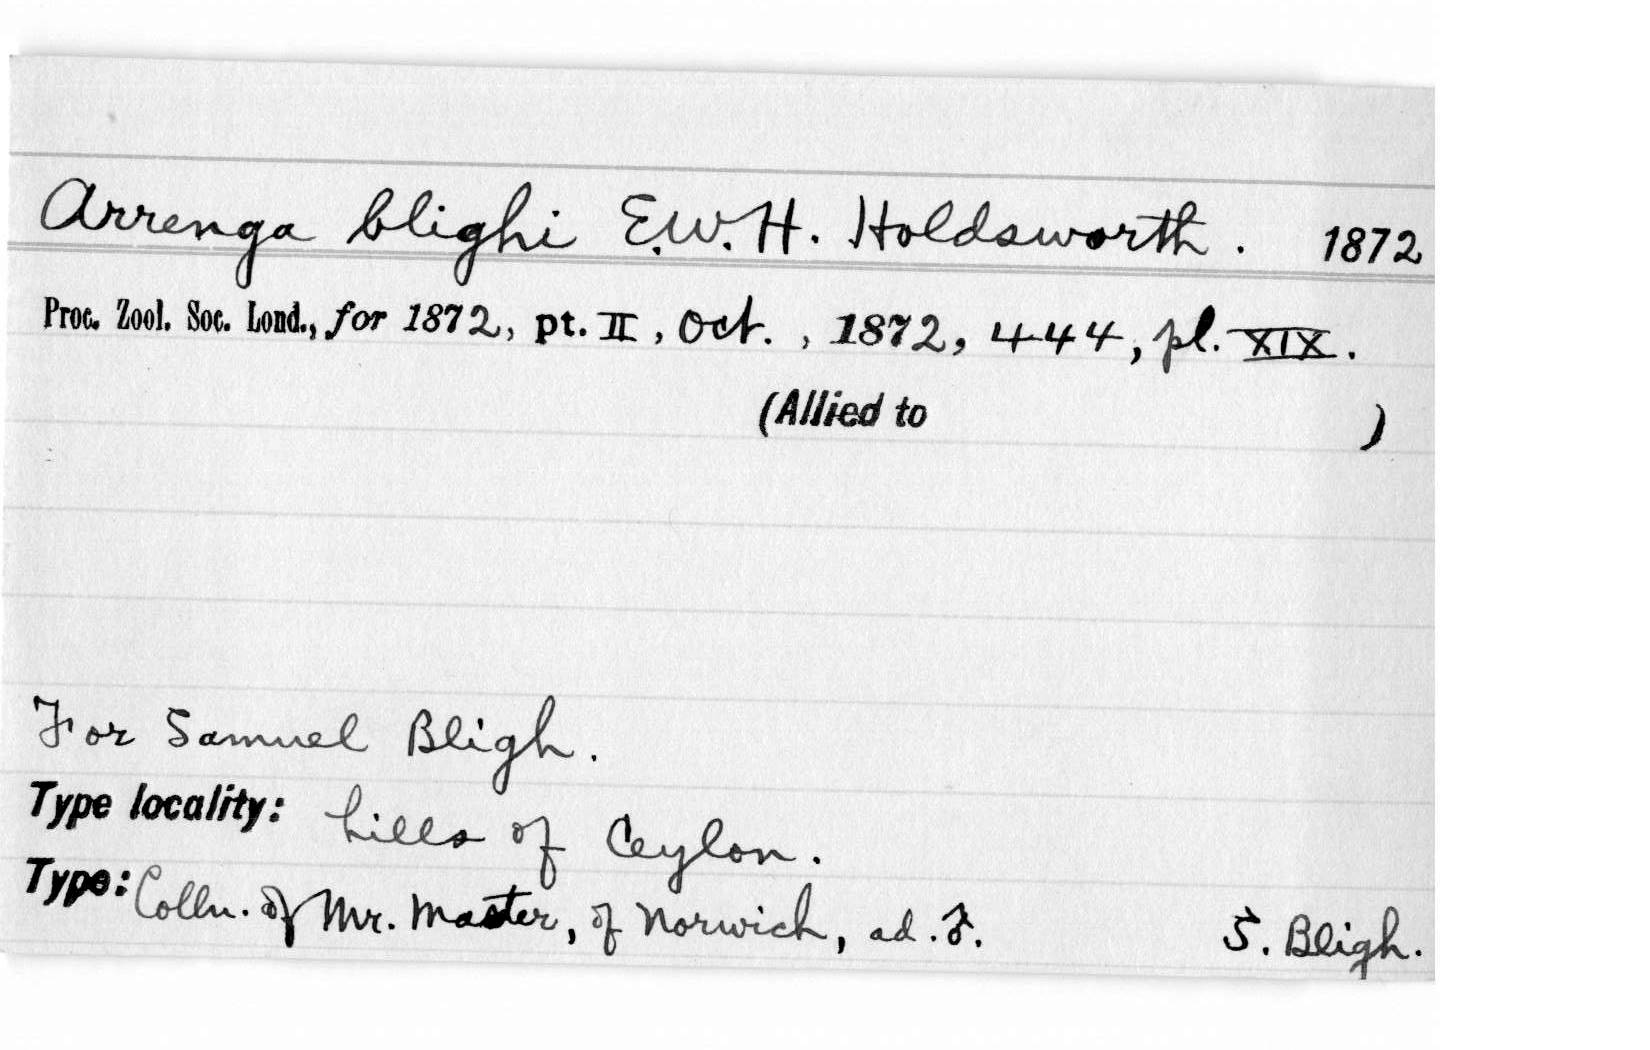 Arrenga blighi E.W.H. Holdsworth. 1872
Proc. Zool. Soc. Lond., for 1872, pt. II, Oct. , 1872, 444, pl. XIX.
(Allied to )
For Samuel Bligh.
Type locality: hills of Ceylon.
Type: Colln. of Mr. Master, of Norwich, ad. ♂. S. Bligh.